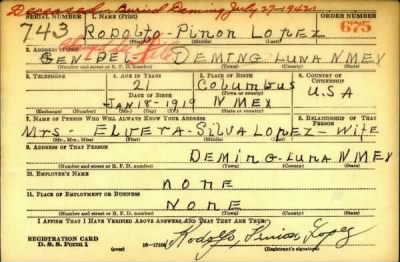 Deceased Buried Deming July 27-1942
SERIAL NUMBER 1. NAME (Print) ORDER NUMBER
743 RODOLFO-PINON LOPEZ 675
(First) (Middle) (Last)
2. ADDRESS (Print)
GEN DEL DEMING LUNA N MEX
(Number and street or R. F. D. number) (Town) (County) (State)
3. TELEPHONE 4. AGE IN YEARS 5. PLACE OF BIRTH 6. COUNTRY OF CITIZENSHIP
21 Columbus U.S.A
DATE OF BIRTH (Town or county)
JAN 18-1919 N MEX
(Exchange) (No.) (Mo.) (Day) (Yr.) (State or country)
7. NAME OF PERSON WHO WILL ALWAYS KNOW YOUR ADDRESS 8. RELATIONSHIP OF THAT PERSON
MRS- ELVETA-SILVA LOPEZ- WIFE
(Mr., Mrs., Miss) (First) (Middle) (Last)
9. ADDRESS OF THAT PERSON
DEMING-LUNA N MEX
(Number and street or R. F. D. number) (Town) (County) (State)
10. EMPLOYER'S NAME
NONE
11. PLACE OF EMPLOYMENT OR BUSINESS
NONE
(Number and street or R. F. D. number) (Town) (County) (State)
I AFFIRM THAT I HAVE VERIFIED ABOVE ANSWERS AND THAT THEY ARE TRUE.
REGISTRATION CARD
D. S. S. Form 1 (over) Rodolfo Pinon Lopez
(Registrant's signature)